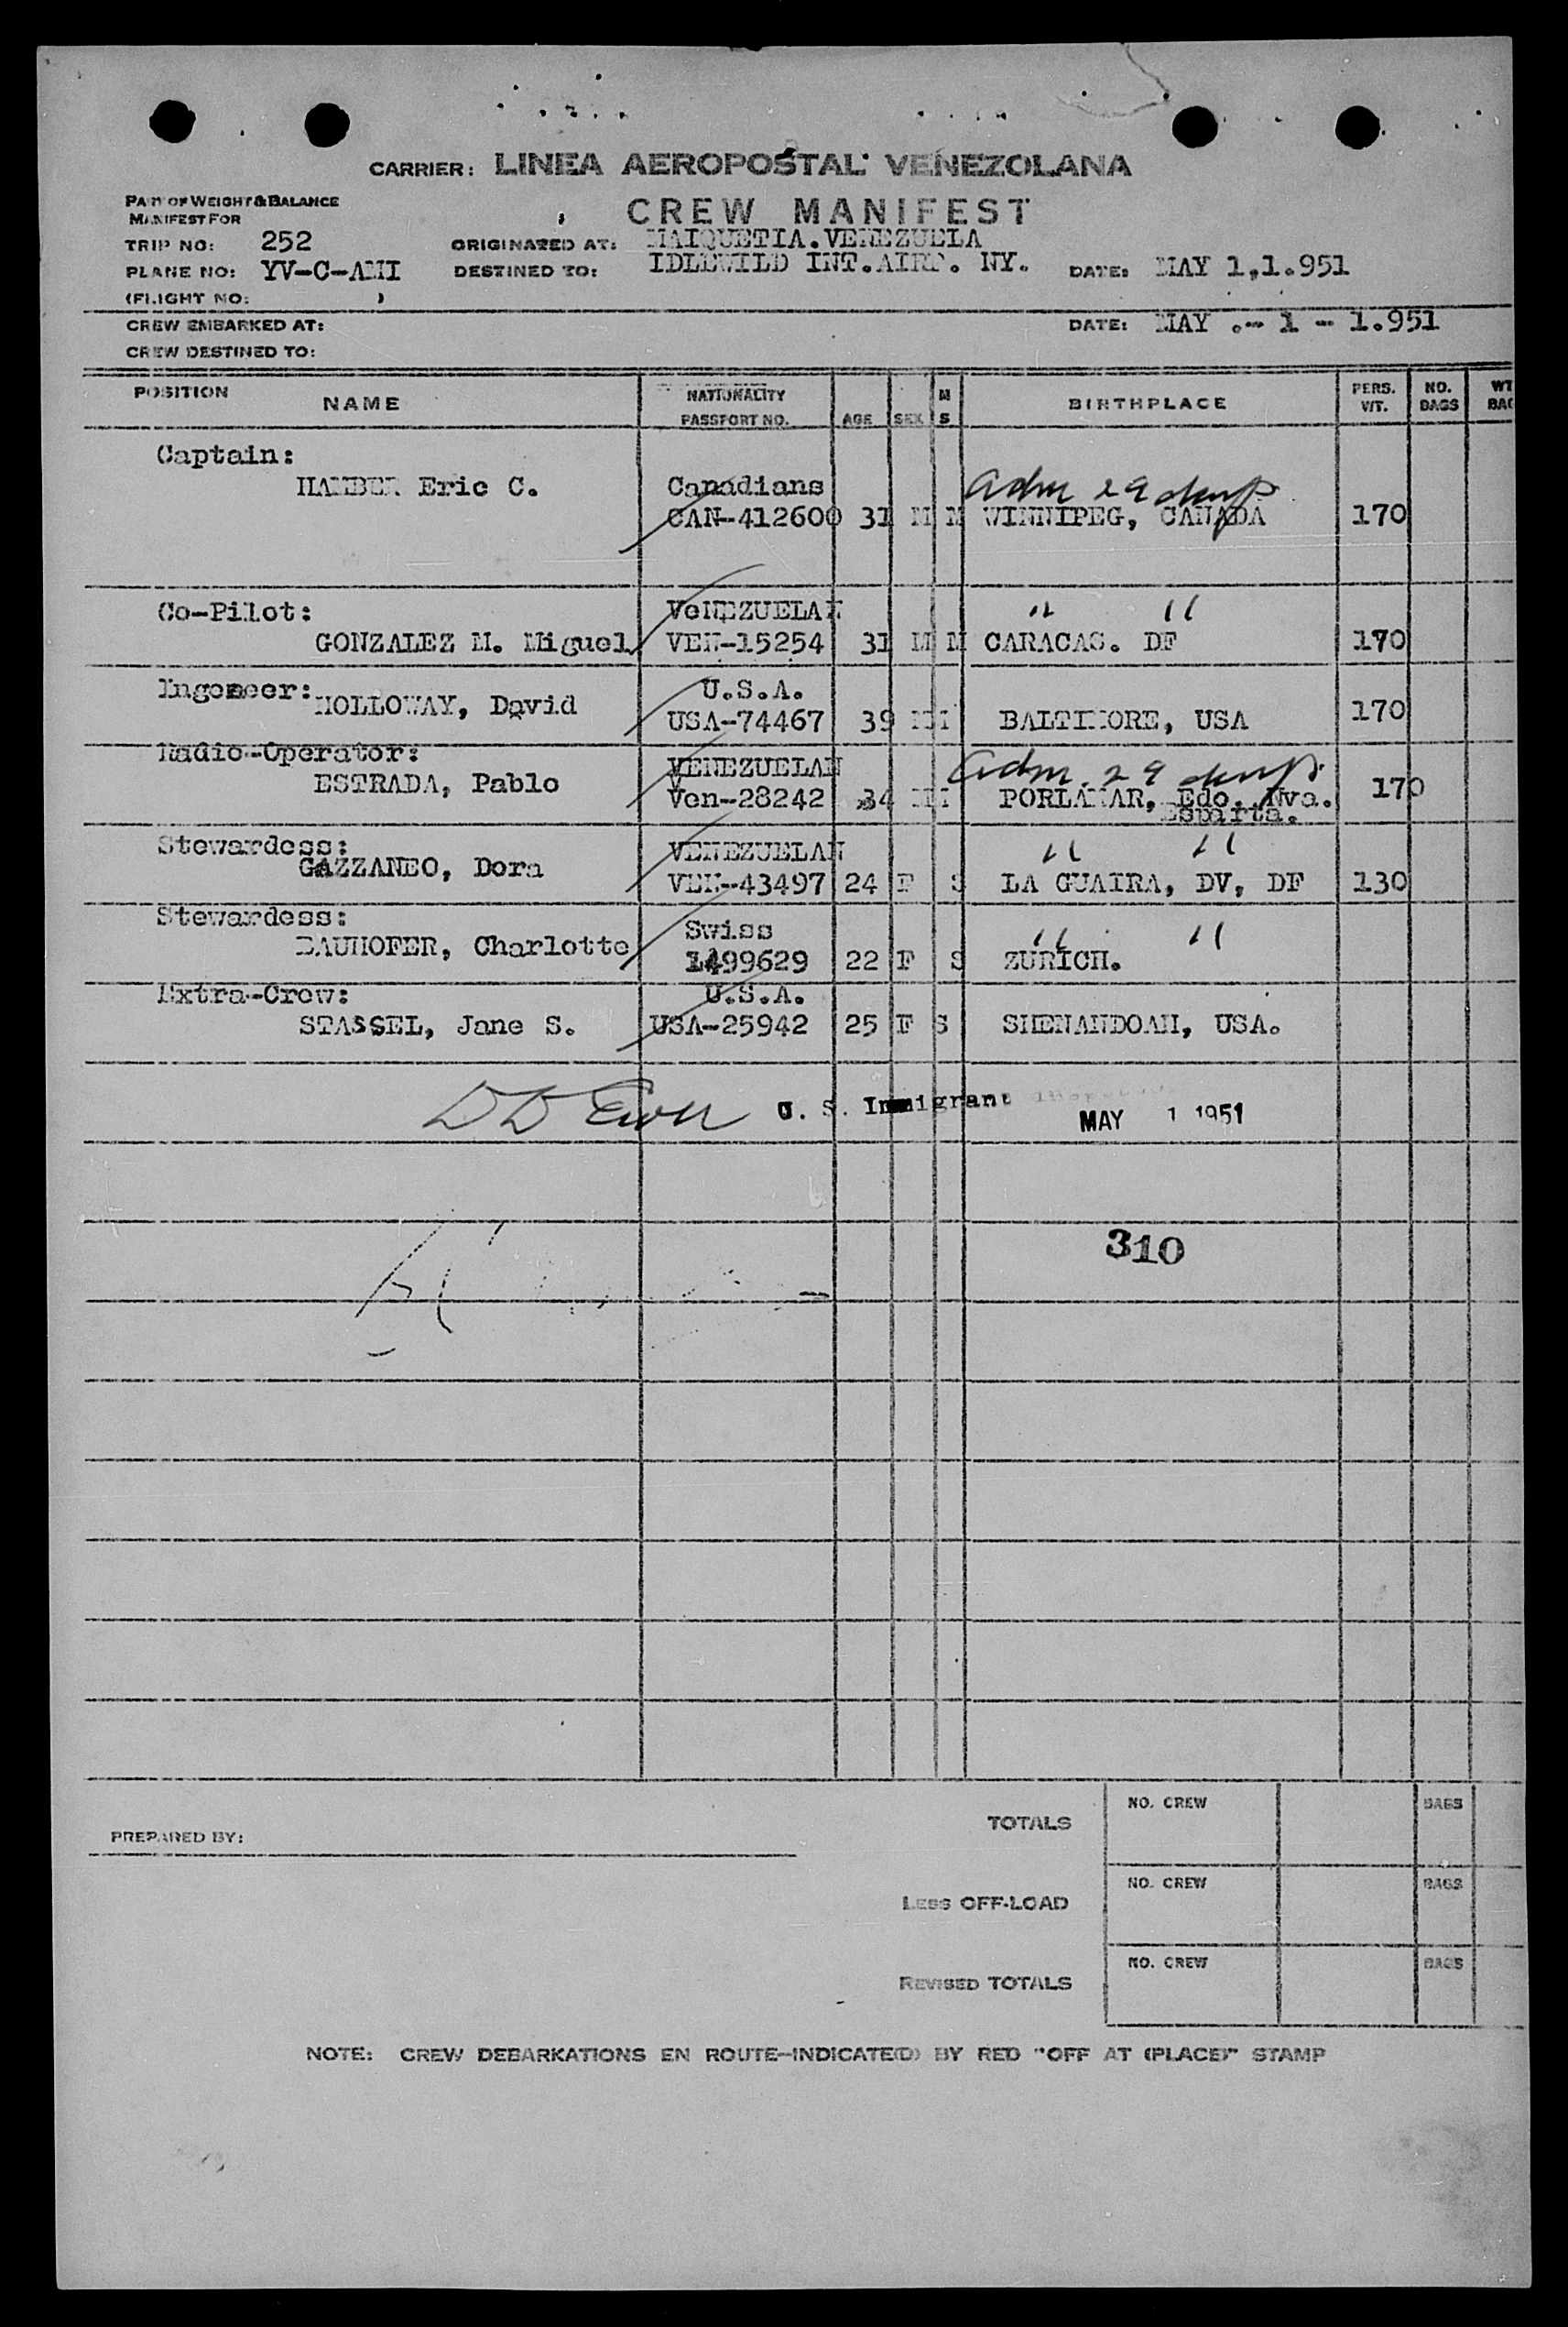 CARRIER: LINEA AEROPOSTAL VENEZOLANA
PART OF WEIGHT & BALANCE
MANIFEST FOR
CREW MANIFEST
TRIP NO: 252 ORIGINATED AT: MAIQUETIA.VENEZUELA
PLANE NO: YV-C-AMI DESTINED TO: IDLEWILD INT.AIRP. NY. DATE: MAY 1,1.951
(FLIGHT NO: )
CREW EMBARKED AT: DATE: MAY .- 1 - 1.951
CREW DESTINED TO:
POSITION NAME NATIONALITY PASSPORT NO. AGE SEX M S BIRTHPLACE PERS. WT. NO. BAGS WT BAG
Captain:
Eric C. Canadians Adm 29
CAN-412600 31 M M WINNIPEG, CANADA 170
Co-Pilot: VeNEZUELAN " "
GONZALEZ M. Miguel VEN-15254 31 M M CARACAS. DF 170
HOLLOWAY, David U.S.A.
USA-74467 39 M M BALTIMORE, USA 170
Radio-Operator: VENEZUELAN Adm. 29
ESTRADA, Pablo Ven-28242 34 M M PORLAMAR, Edo. Nva. 170
Esparta.
Stewardess: VENEZUELAN " "
GAZZANEO, Dora VEN-43497 24 F S LA GUAIRA, DV, DF 130
Stewardess: Swiss " "
BAUHOFER, Charlotte 1499629 22 F S ZURICH.
Extra-Crew: U.S.A.
STASSEL, Jane S. USA-25942 25 F S SHENANDOAH, USA.
U. S. Immigrant
MAY 1 1951
310
PREPARED BY:
TOTALS NO. CREW BAGS
LESS OFF-LOAD NO. CREW BAGS
REVISED TOTALS NO. CREW BAGS
NOTE: CREW DEBARKATIONS EN ROUTE-INDICATE(D) BY RED "OFF AT (PLACE)" STAMP